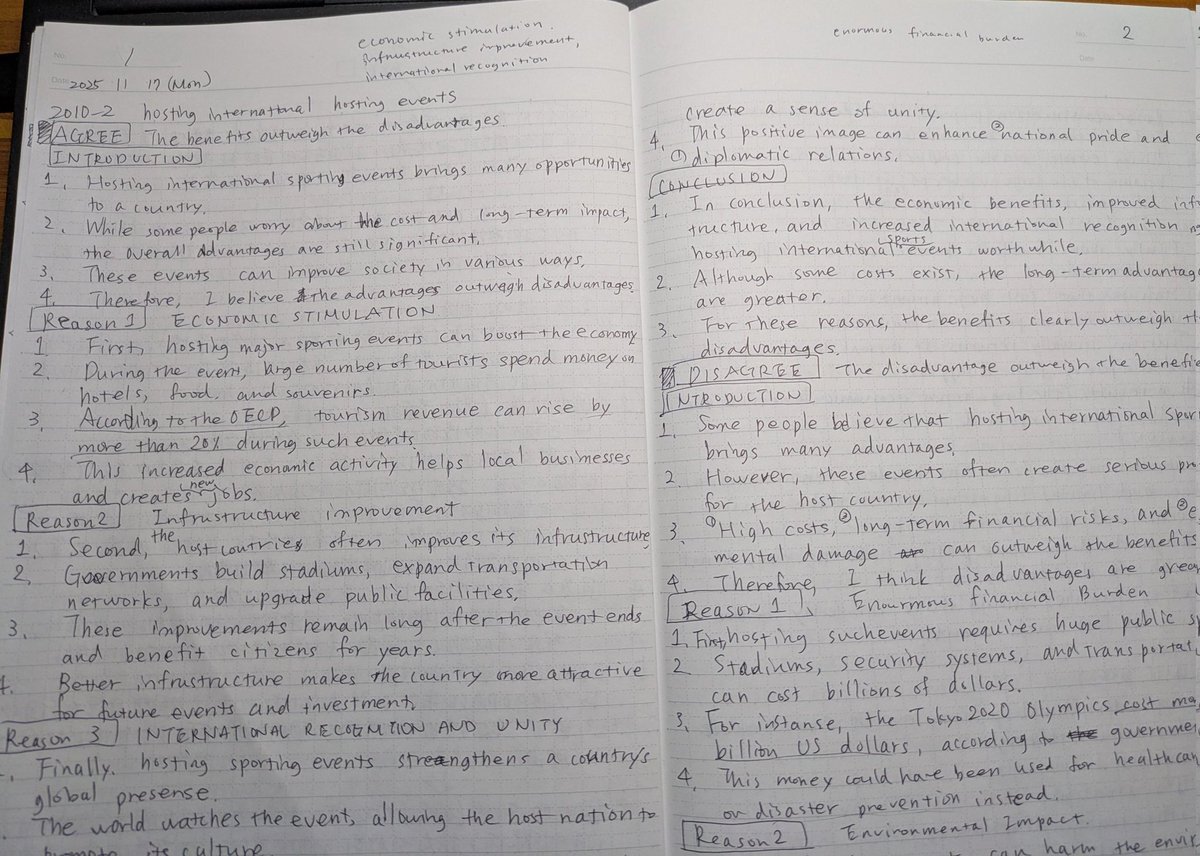 No.
1
economic stimulation.
infrustructure improvement,
international recognition
Date 2025 11 17 (Mon)
2010-2 hosting international hosting events
AGREE The benefits outweigh the disadvantages
INTRODUCTION
1. Hosting international sporting events brings many opportunities
to a country.
2. While some people worry about the cost and long-term impact,
the overall advantages are still significant.
3. These events can improve society in various ways.
4. Therefore, I believe the advantages outweigh disadvantages.
Reason 1 ECONOMIC STIMULATION
1 First, hosting major sporting events can boost the economy
2. During the event, large number of tourists spend money on
hotels, food, and souvenirs.
3. According to the OECD, tourism revenue can rise by
more than 20% during such events
4. This increased economic activity helps local businesses
and creates new jobs.
Reason 2 Infrustructure improvement
1. Second, the host countries often improves its infrustructure
2. Governments build stadiums, expand transportation
networks, and upgrade public facilities.
3. These improvements remain long after the event ends
and benefit citizens for years.
4. Better infrustructure makes the country more attractive
for future events and investment,
Reason 3 INTERNATIONAL RECOGNITION AND UNITY
. Finally. hosting sporting events strengthens a country's
global presense.
. The world watches the event, allowing the host nation to
its culture.
enormous financial burden
No. 2
Date
create a sense of unity.
4. This positive image can enhance ② national pride and
① diplomatic relations.
CONCLUSION
1. In conclusion, the economic benefits, improved
tructure, and increased international recognition
hosting international sports events worthwhile.
2. Although some costs exist, the long-term
are greater.
3. For these reasons, the benefits clearly outweigh
disadvantages.
DISAGREE The disadvantage outweigh the
INTRODUCTION
1. Some people believe that hosting international
brings many advantages.
2. However, these events often create serious
for the host country.
3. ① High costs, ② long-term financial risks, and ③
mental damage can outweigh the benefits
4. Therefore, I think disadvantages are
Reason 1 Enourmous financial Burden
1. First, hosting such events requires huge public
2 Stadiums, security systems, and
can cost billions of dollars.
3. For instanse, the Tokyo 2020 Olympics cost
billion US dollars, according to
4. This money could have been used for
or disaster prevention instead.
Reason 2 Environmental Impact.
can harm the